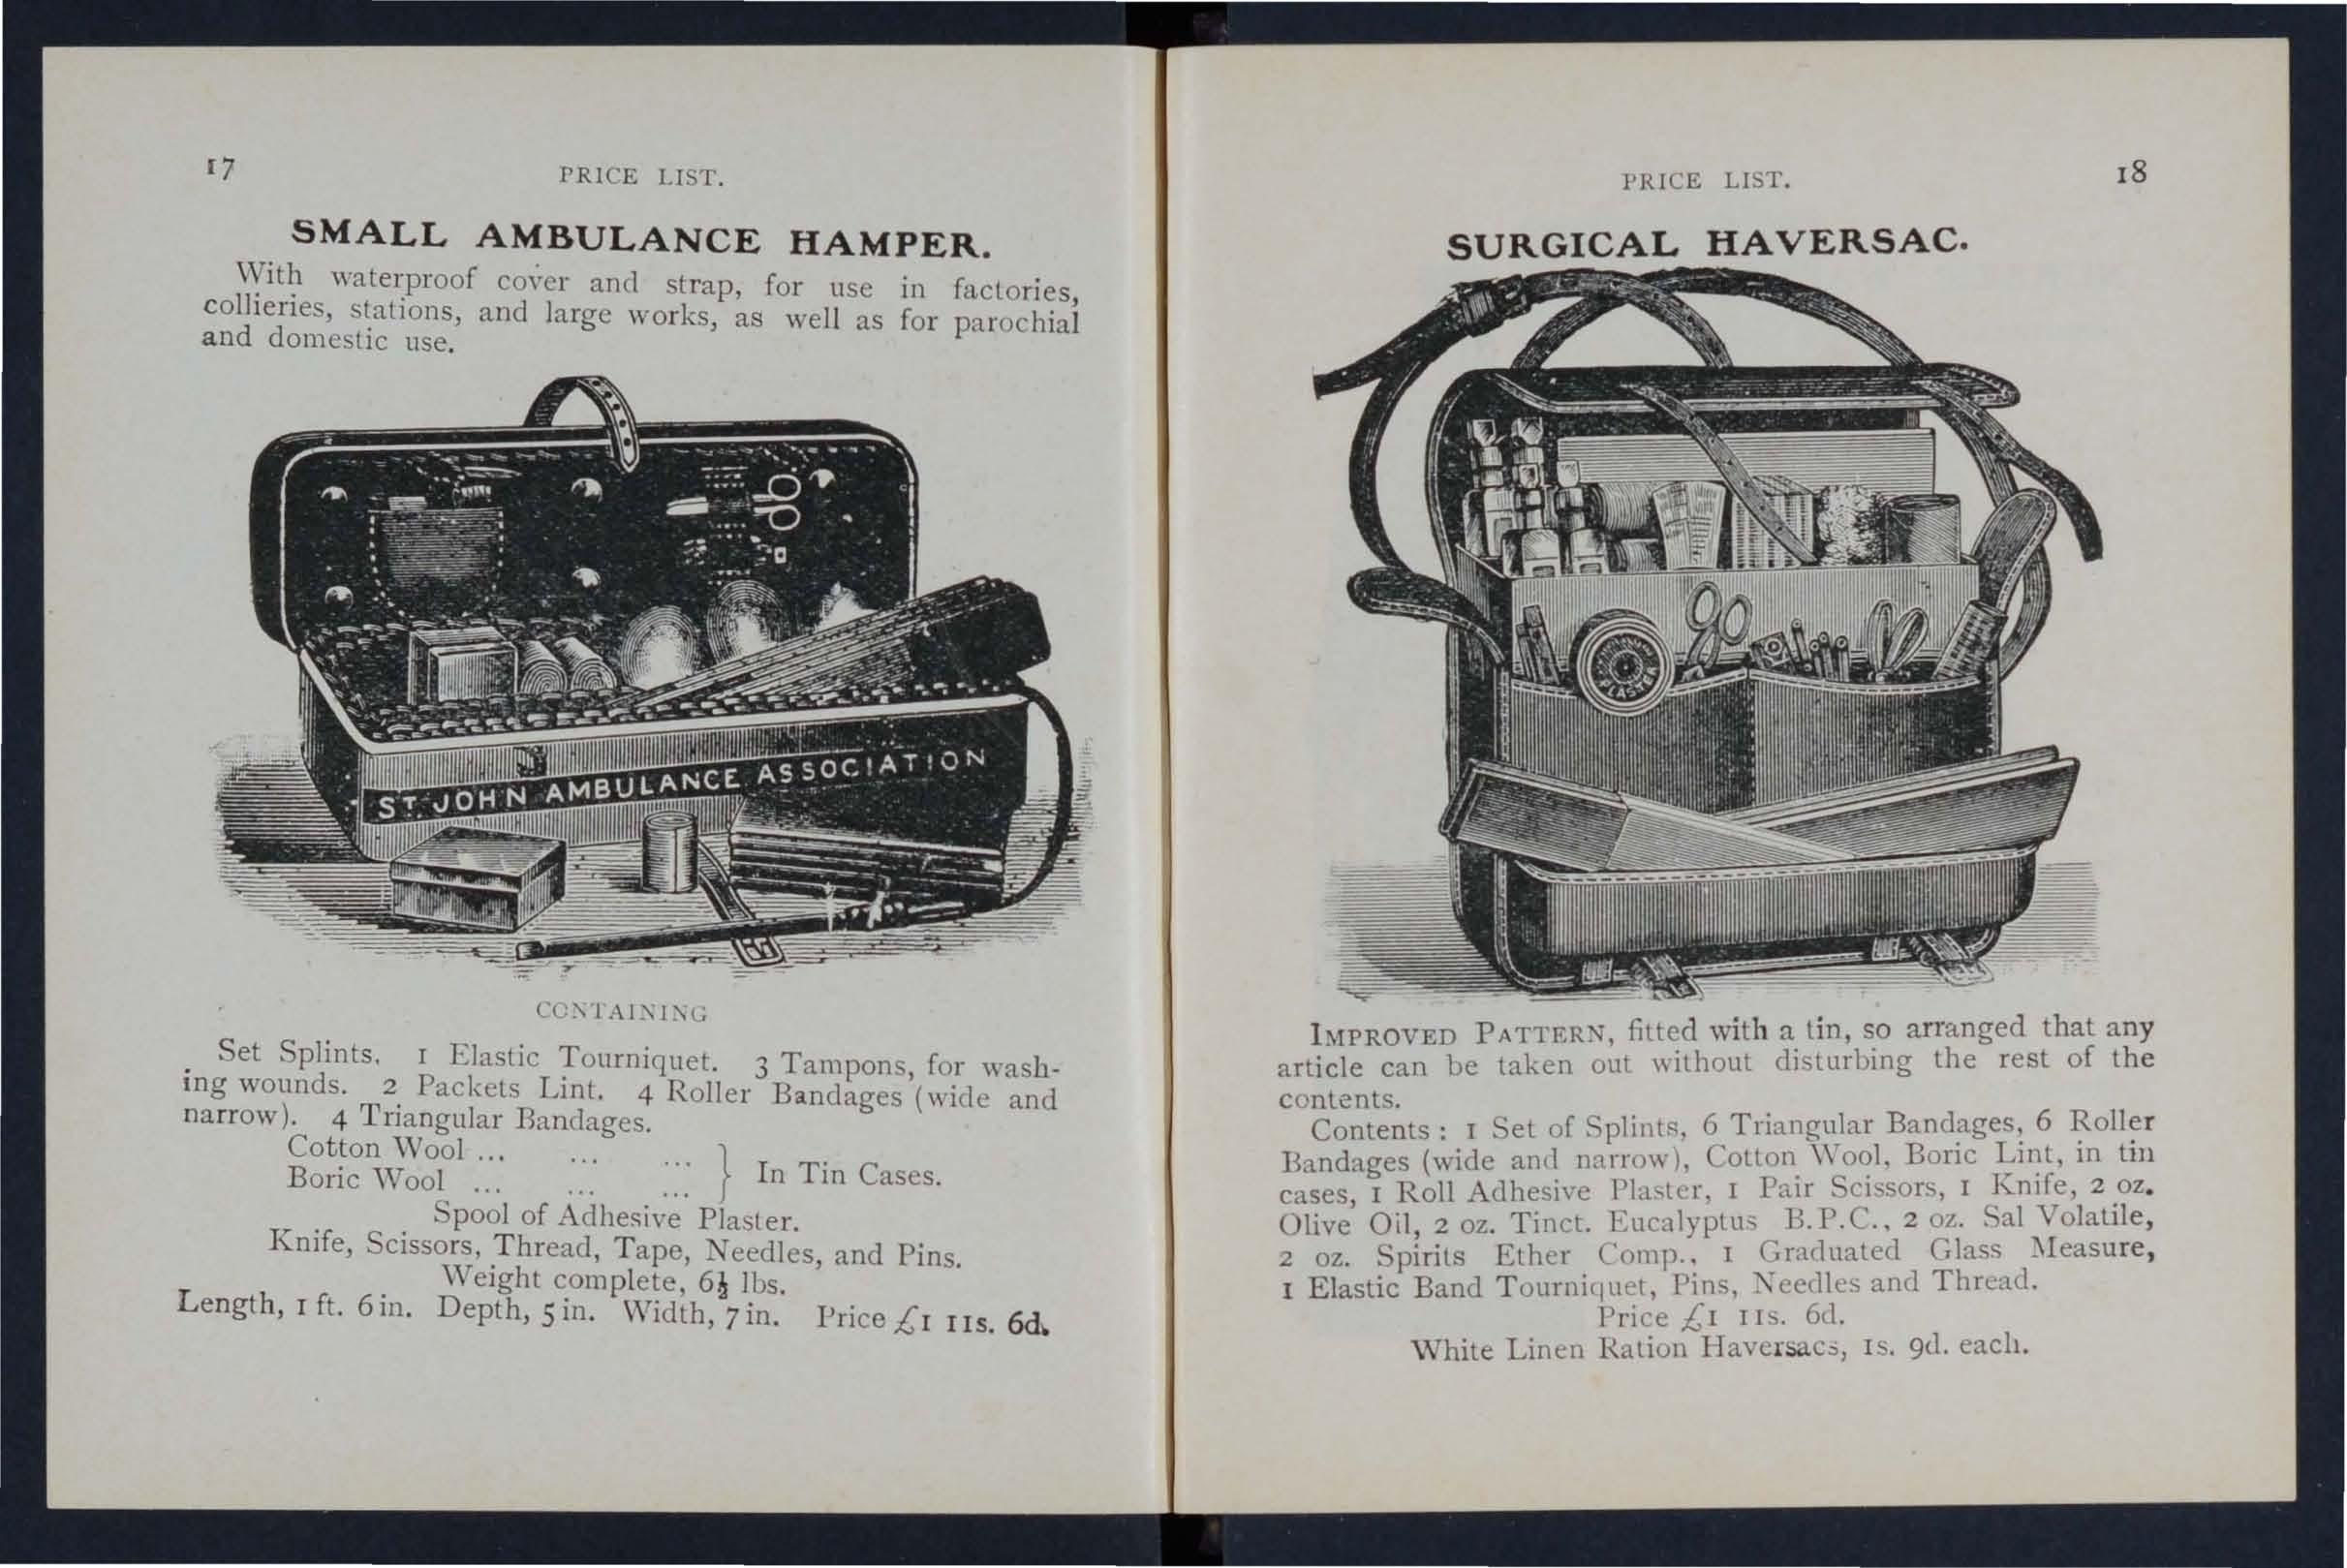 17
PRICE LIST.
SMALL AMBULANCE HAMPER.
With waterproof cover and strap, for use in factories,
collieries, stations, and large works, as well as for parochial
and domestic use.
ST. JOHN AMBULANCE ASSOCIATION
CONTAINING
Set Splints. 1 Elastic Tourniquet. 3 Tampons, for wash-
ing wounds. 2 Packets Lint. 4 Roller Bandages (wide and
narrow). 4 Triangular Bandages.
Cotton Wool ... ... ...
Boric Wool ... ... ...
} In Tin Cases.
Spool of Adhesive Plaster.
Knife, Scissors, Thread, Tape, Needles, and Pins.
Weight complete, 6½ lbs.
Length, 1 ft. 6 in. Depth, 5 in. Width, 7 in. Price £1 11s. 6d.
PRICE LIST.
18
SURGICAL HAVERSAC.
PLASTER
IMPROVED PATTERN, fitted with a tin, so arranged that any
article can be taken out without disturbing the rest of the
contents.
Contents: 1 Set of Splints, 6 Triangular Bandages, 6 Roller
Bandages (wide and narrow), Cotton Wool, Boric Lint, in tin
cases, 1 Roll Adhesive Plaster, 1 Pair Scissors, 1 Knife, 2 oz.
Olive Oil, 2 oz. Tinct. Eucalyptus B.P.C., 2 oz. Sal Volatile,
2 oz. Spirits Ether Comp., 1 Graduated Glass Measure,
1 Elastic Band Tourniquet, Pins, Needles and Thread.
Price £1 11s. 6d.
White Linen Ration Haversacs, 1s. 9d. each.